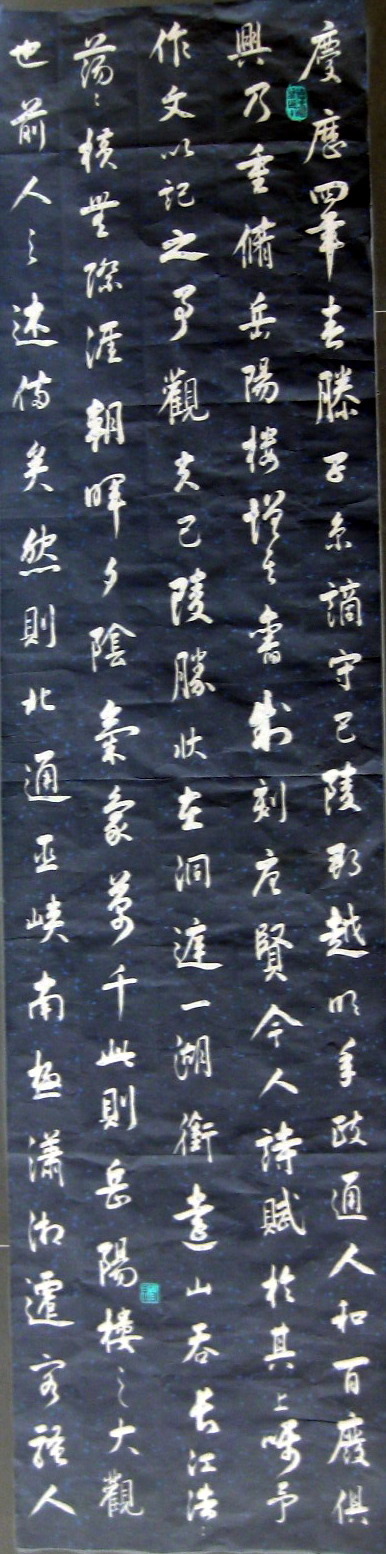 慶歷四年春滕子京謫守巴陵郡越明年政通人和百廢俱
興乃重脩岳陽樓增其舊制刻唐賢今人詩賦於其上囑予
作文以記之予觀夫巴陵勝狀在洞庭一湖銜遠山吞長江浩〻
蕩〻橫無際涯朝暉夕陰氣象萬千此則岳陽樓之大觀
也前人之述備矣然則北通巫峽南極瀟湘遷客騷人